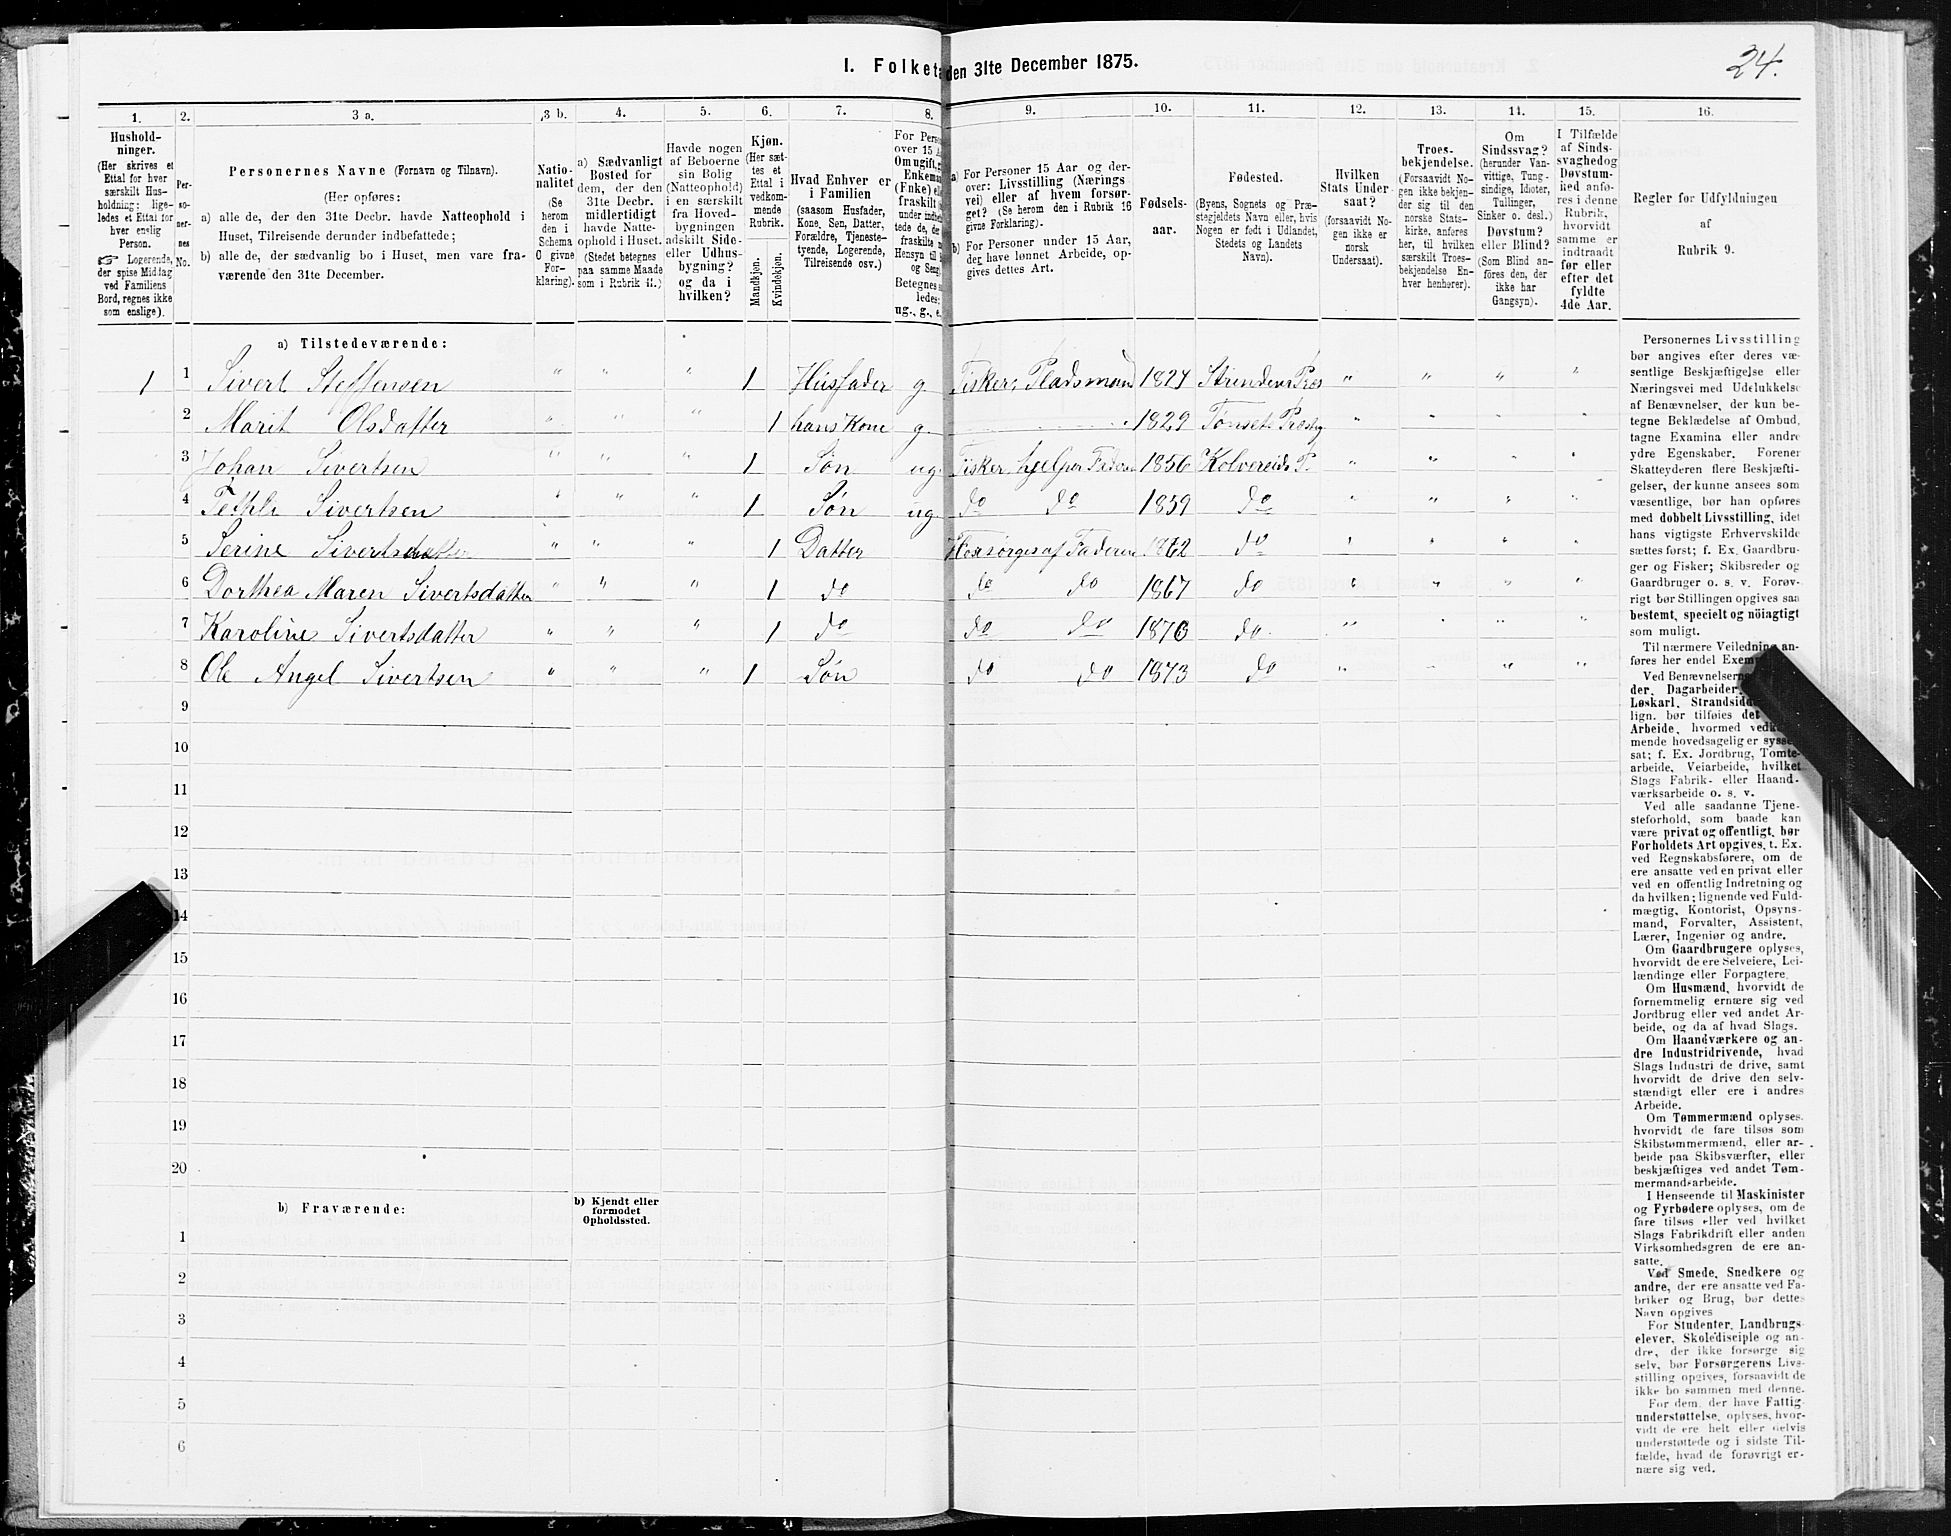 24.
I. Folketæ den 31te December 1875.
1. 2. 3 a. 3 b. 4. 5. 6. 7. 8. 9. 10. 11. 12. 13. 14. 15. 16.
Hushold-
ninger.
(Her skrives et
Ettal for hver
særskilt Hus-
holdning; lige-
ledes et Ettal for
hver enslig
Person.
☞ Logerende,
der spise Middag
ved Familiens
Bord, regnes ikke
som enslige).
Per-
so-
ner-
nes
No.
Personernes Navne (Fornavn og Tilnavn).
(Her opføres:
a) alle de, der den 31te Decbr. havde Natteophold i
Huset, Tilreisende derunder indbefattede;
b) alle de, der sædvanlig bo i Huset, men vare fra-
værende den 31te December.
Natio-
nalitet
(Se
herom
den i
Schema
O givne
For-
klaring).
a) Sædvanligt
Bosted for
dem, der den
31te Decbr.
midlertidigt
havde Natte-
ophold i Huset.
(Stedet betegnes
paa samme Maade
som i Rubrik 11.)
Havde nogen
af Beboerne
sin Bolig
(Natteophold)
i en særskilt
fra Hoved-
bygningen
adskilt Side-
eller Udhus-
bygning?
og da i
hvilken?
Kjøn.
(Her sæt-
tes et
Ettal i
vedkom-
mende
Rubrik.
Mandkjøn.
Kvindekjøn.
Hvad Enhver er
i Familien
(saasom Husfader,
Kone, Søn, Datter,
Forældre, Tjeneste-
tyende, Logerende,
Tilreisende osv.)
For Perso
over 15 A
Om ugift, g
Enkema
(Enke) el
fraskilt
under indbe
tede de, d
fraskilte
Hensyn til
og Seng
Betegnes s
ledes:
ug., g., e.
a) For Personer 15 Aar og der-
over: Livsstilling (Nærings-
vei) eller af hvem forsør-
get? (Se herom den i Rubrik 16
givne Forklaring).
b) For Personer under 15 Aar,
der have lønnet Arbeide, op-
gives dettes Art.
Fødsels-
aar.
Fødested.
(Byens, Sognets og Præ-
stegjeldets Navn eller, hvis
Nogen er født i Udlandet,
Stedets og Landets
Navn).
Hvilken
Stats Under-
saat?
(forsaavidt No-
gen ikke er
norsk
Undersaat).
Troes-
bekjendelse.
(Forsaavidt No-
gen ikke bekjen-
der sig til den
norske Stats-
kirke, anføres
her, til hvilken
særskilt Troes-
bekjendelse En-
hver henhører).
Om
Sindssvag?
(herunder Van-
vittige, Tung-
sindige, Idioter,
Tullinger,
Sinker o. desl.)
Døvstum?
eller Blind?
(Som Blind an-
føres den, der
ikke har
Gangsyn).
I Tilfælde
af Sinds-
svaghed og
Døvstum-
hed anfø-
res i denne
Rubrik,
hvorvidt
samme er
indtraadt
før eller
efter det
fyldte
4de Aar.
Regler for Udfyldningen
af
Rubrik 9.
a) Tilstedeværende:
1 1 Sivert Steffensen " " " 1 Husfader g Fisker, Pladsmand 1827 Strindens Præs " " " "
2 Marit Olsdatter " " " 1 hans Kone g. 1829 Tønset Præstg " " " "
3 Johan Sivertsen " " " 1 Søn ug. Fisker, hjelper Faderen 1856 Kolvereids P. " " " "
4 Sivertsen " " " 1 Søn ug. do do 1859 do " " " "
5 Serine Sivertsdatter " " " 1 Datter Forsørges af Faderen 1862 do " " " "
6 Dorthea Maren Sivertsdatter " " " 1 do do do 1867 do " " " "
7 Karoline Sivertsdatter " " " 1 do do do 1870 do " " " "
8 Ole Angel Sivertsen " " " 1 Søn do do 1873 do " " " "
9
10
11
12
13
14
15
16
17
18
19
20
b) Fraværende:
b) Kjendt eller
formodet
Opholdssted.
1
2
3
4
5
6
Personernes Livsstilling
bør angives efter deres væ-
sentlige Beskjæftigelse eller
Næringsvei med Udelukkelse
af Benævnelser, der kun be-
tegne Beklædelse af Ombud,
tagne Examina eller andre
ydre Egenskaber. Forener
Skatteyderen flere Beskjæfti-
gelser, der kunne ansees som
væsentlige, bør han opføres
med dobbelt Livsstilling, idet
hans vigtigste Erhvervskilde
sættes først; f. Ex. Gaardbru-
ger og Fisker; Skibsreder og
Gaardbruger o. s. v. Forøv-
rigt bør Stillingen opgives saa
bestemt, specielt og nöiagtigt
som muligt.
Til nærmere Veiledning an-
føres her endel Exemp
Ved Benævnelserne
der, Dagarbeider
Løskarl, Strandsidd
lign. bør tilføies det
Arbeide, hvormed vedk
mende hovedsagelig er syssel
sat; f. Ex. Jordbrug, Tomte-
arbeide, Veiarbeide, hvilket
Slags Fabrik- eller Haand-
værksarbeide o. s. v.
Ved alle saadanne Tjene-
steforhold, som baade kan
være privat og offentligt, bør
Forholdets Art opgives, t. Ex.
ved Regnskabsførere, om de
ere ansatte ved en privat eller
ved en offentlig Indretning og
da hvilken; lignende ved Fuld-
mægtig, Kontorist, Opsyns-
mand, Forvalter, Assistent,
Lærer, Ingeniør og andre.
Om Gaardbrugere oplyses,
hvorvidt de ere Selveiere, Lei-
lændinge eller Forpagtere.
Om Husmænd, hvorvidt de
fornemmelig ernære sig ved
Jordbrug eller ved andet Ar-
beide, og da af hvad Slags.
Om Haandværkere og an-
dre Industridrivende, hvad
Slags Industri de drive, samt
hvorvidt de drive den selv-
stændigt eller ere i andres
Arbeide.
Om Tømmermænd oplyses,
hvorvidt de fare tilsøs som
Skibstømmermænd, eller ar-
beide paa Skibsværfter, eller
beskjæftiges ved andet Tøm-
mermandsarbeide.
I Henseende til Maskinister
og Fyrbødere oplyses, om de
fare tilsøs eller ved hvilket
Slags Fabrikdrift eller anden
Virksomhedsgren de ere an-
satte.
Ved Smede, Snedkere og
andre, der ere ansatte ved Fa-
briker og Brug, bør dettes
Navn opgives
For Studenter, Landbrugs-
elever, Skoledisciple og an-
dre, der ikke forsørge sig
selv, bør Forsørgerens Livs-
stilling opgives, forsaavidt de
ikke bo sammen med denne.
For dem, der have Fattig-
understøttelse, oplyses, hvor-
vidt de ere helt eller delvis
understøttede og i sidste Til-
fælde, hvad de forøvrigt er-
nære sig ved.